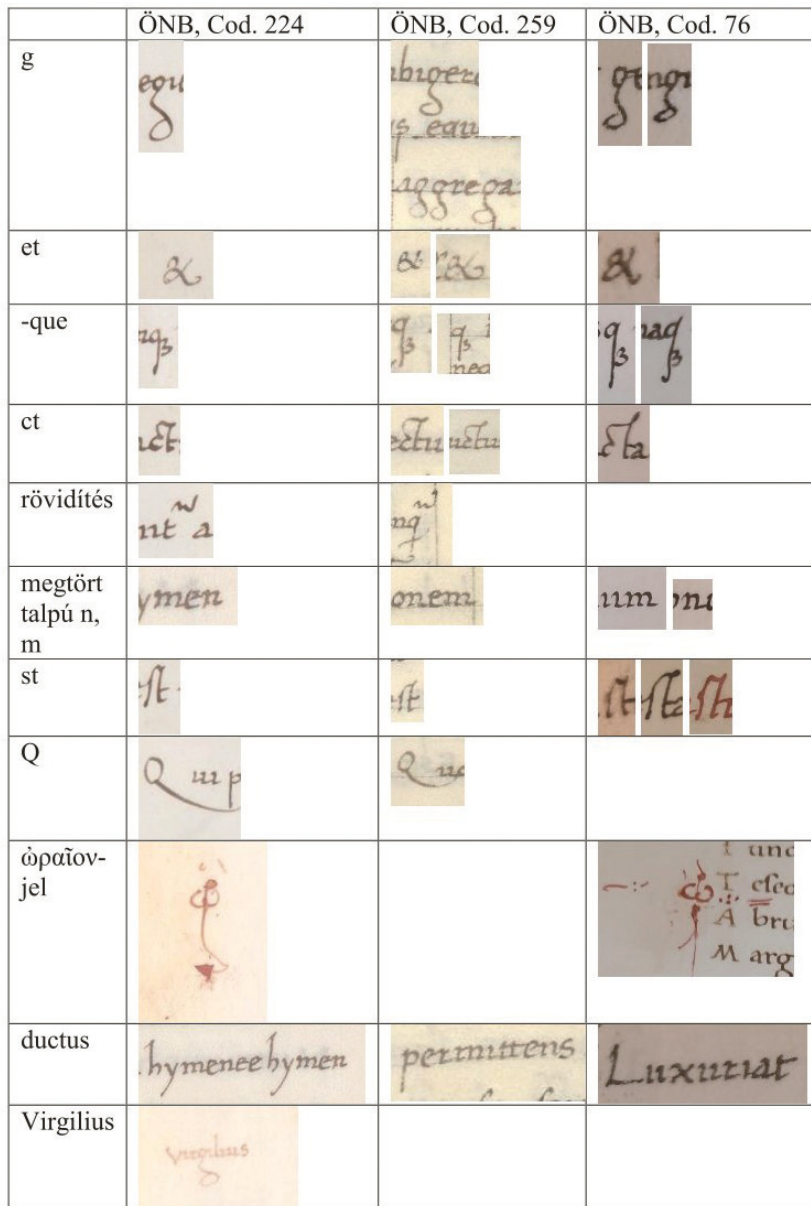 ÖNB, Cod. 224 ÖNB, Cod. 259 ÖNB, Cod. 76
g egu bigera gt ngi
s equ
aggrega
et & & & &
-que nqꝫ qꝫ qꝫ qꝫ naqꝫ
neq
ct ct ectu uctu cta
rövidítés nt a nq
megtört
talpú n,
m ymen onem um onu
st est est st sta sti
Q Q ui p Q uo
ὡραῖον-
jel T unc
T eseo
A bru
M arg
ductus hymenee hymen permittens Luxuriat
Virgilius virgilius